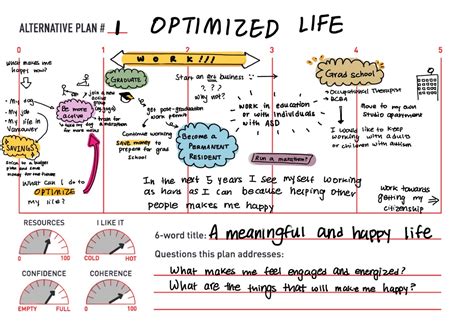 ALTERNATIVE PLAN # 1 OPTIMIZED LIFE
0 1 2 3 4 5
What makes me
happy now?
- My dog
- My job
- My life in
Vancouver
SAVINGS
Stick to a budget
plan and save
money for the
future
What can I do to
OPTIMIZE
my life?
Be more
active
- join a new
active
group
- take my dog
for more walks
WORK!!!
GRADUATE
get post-graduation
work permit
Continue working
SAVE money to
prepare for grad
school
Start an etsy business?
???
Why not?
BECOME A
PERMANENT
RESIDENT
WORK in education
or with individuals
with ASD
Run a marathon!
Grad school
• Occupational Therapist
• BCBA
Move to my own
Studio apartment
I would like to keep
working with adults
or children with autism
In the next 5 years I see myself working
as hard as I can because helping other
people makes me happy
work towards
getting my
citizenship
RESOURCES
I LIKE IT
COLD HOT
CONFIDENCE
EMPTY FULL
COHERENCE
6-word title: A meaningful and happy life
Questions this plan addresses:
What makes me feel engaged and energized?
What are the things that will make me happy?